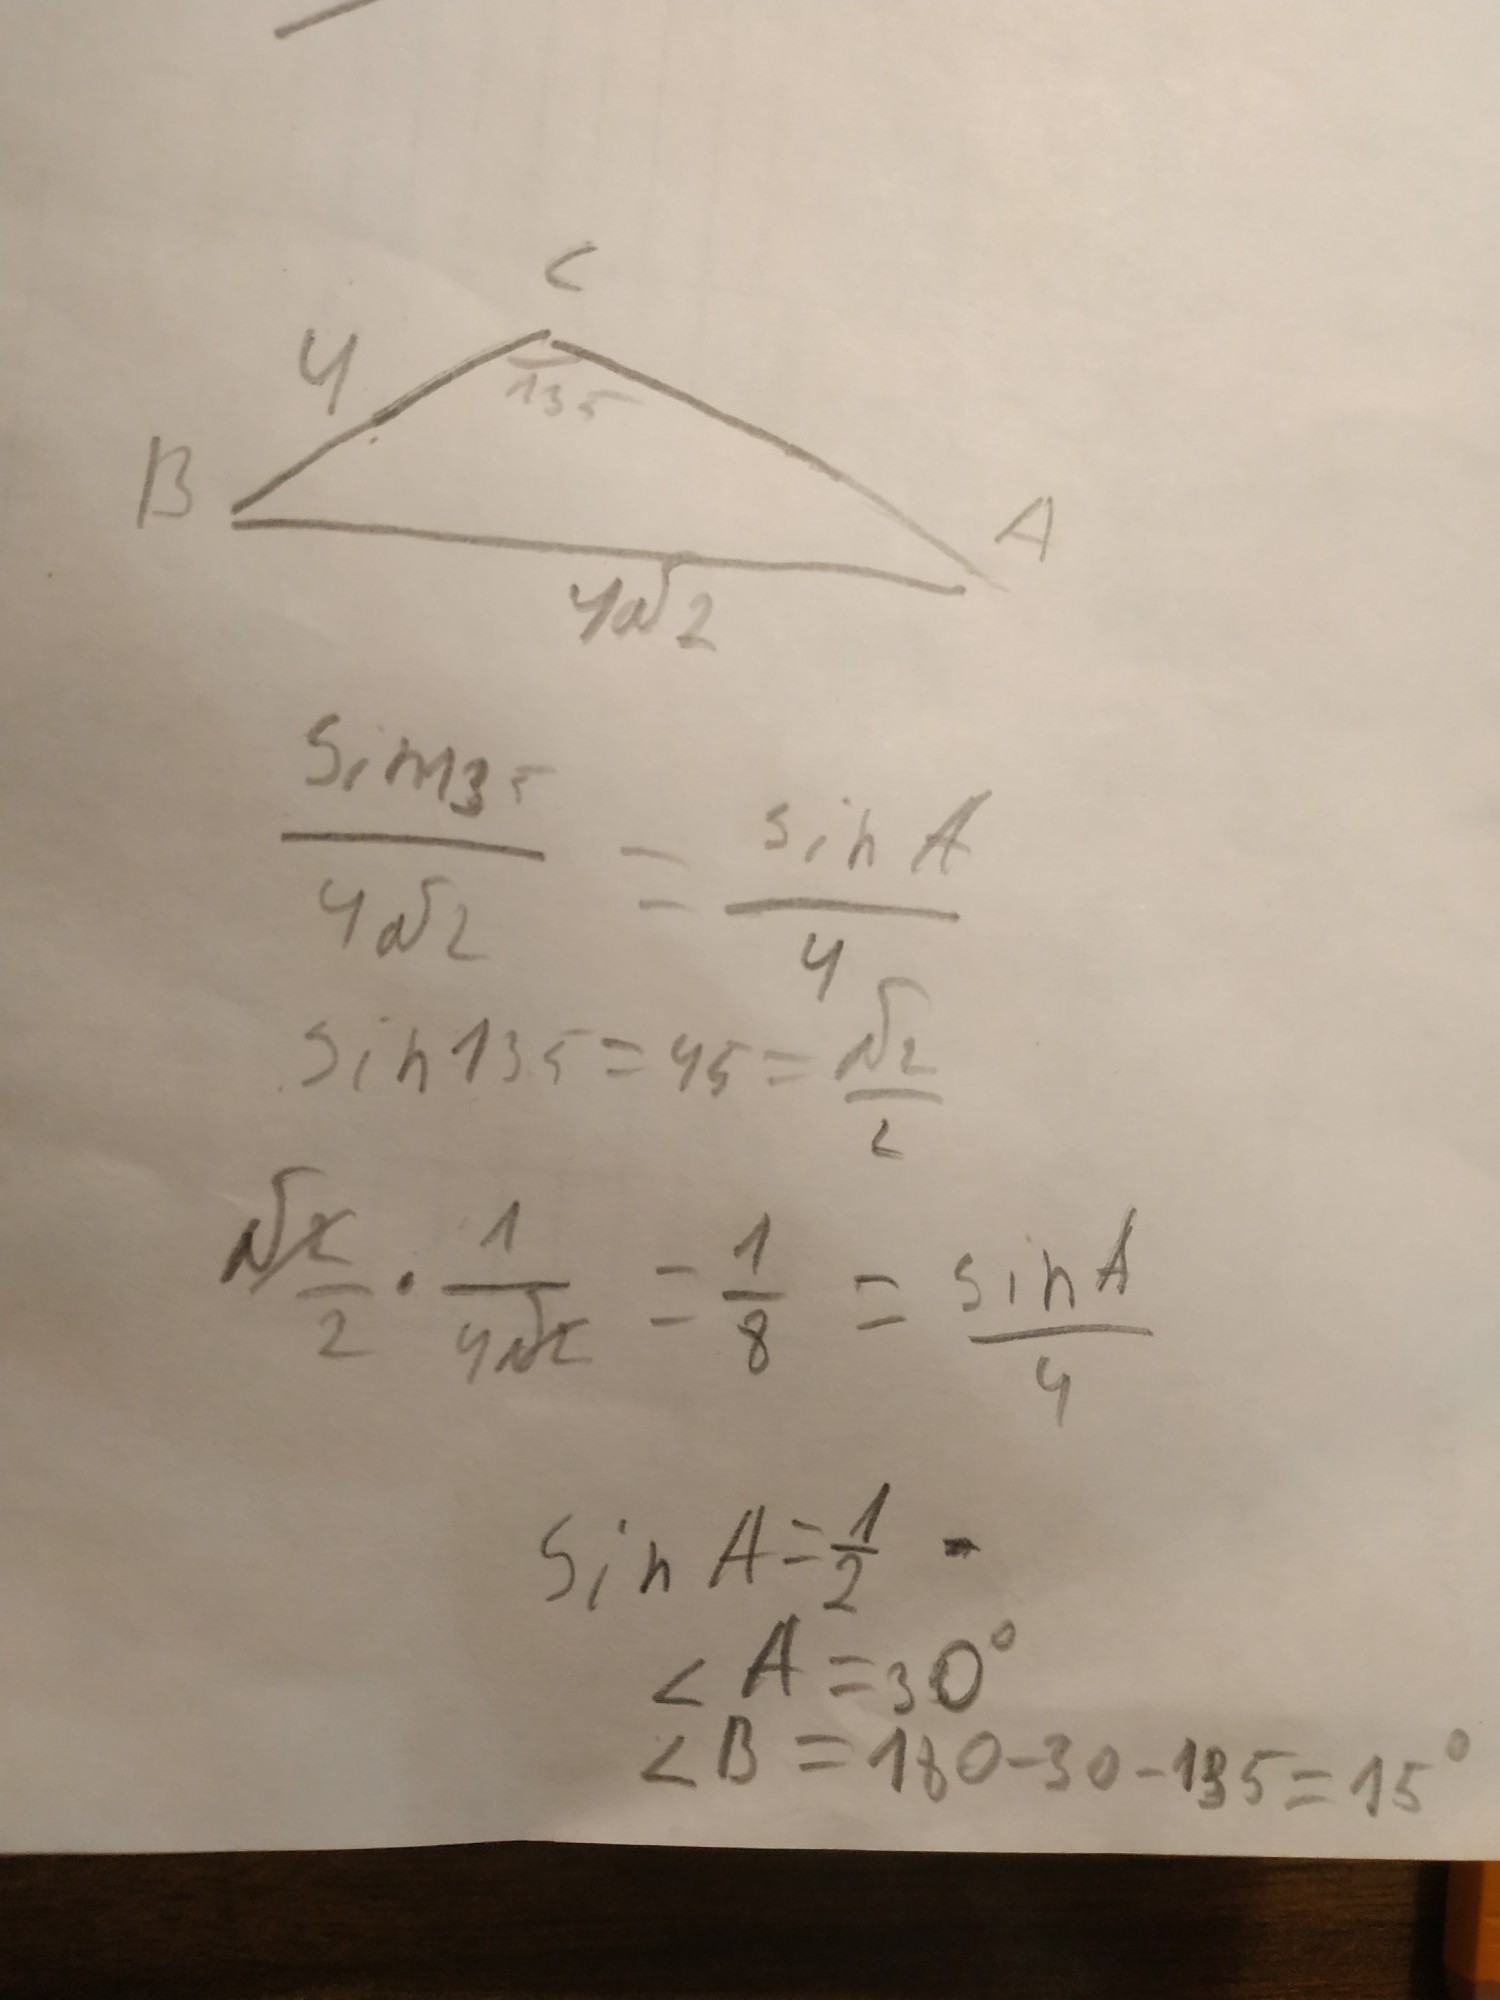 C
4
135
B
A
4√2
sin135/4√2 = sin A/4
sin 135 = 45 = √2/2
√2/2 · 1/4√2 = 1/8 = sin A/4
sin A = 1/2
< A = 30°
< B = 180 - 30 - 135 = 15°